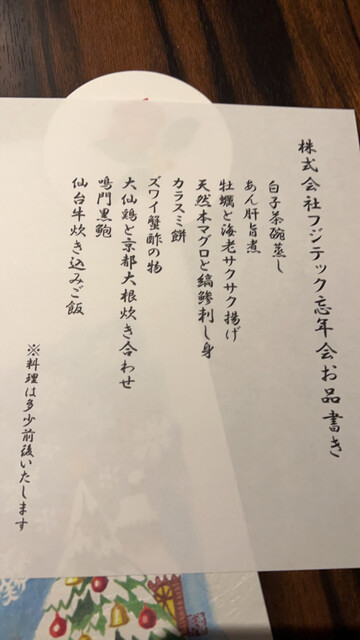 株式会社フジテック忘年会お品書き
白子茶碗蒸し
あん肝旨煮
牡蠣と海老サクサク揚げ
天然本マグロと縞鯵刺し身
カラスミ餅
ズワイ蟹酢の物
大仙鶏と京都大根炊き合わせ
鳴門黒鮑
仙台牛炊き込みご飯
※料理は多少前後いたします